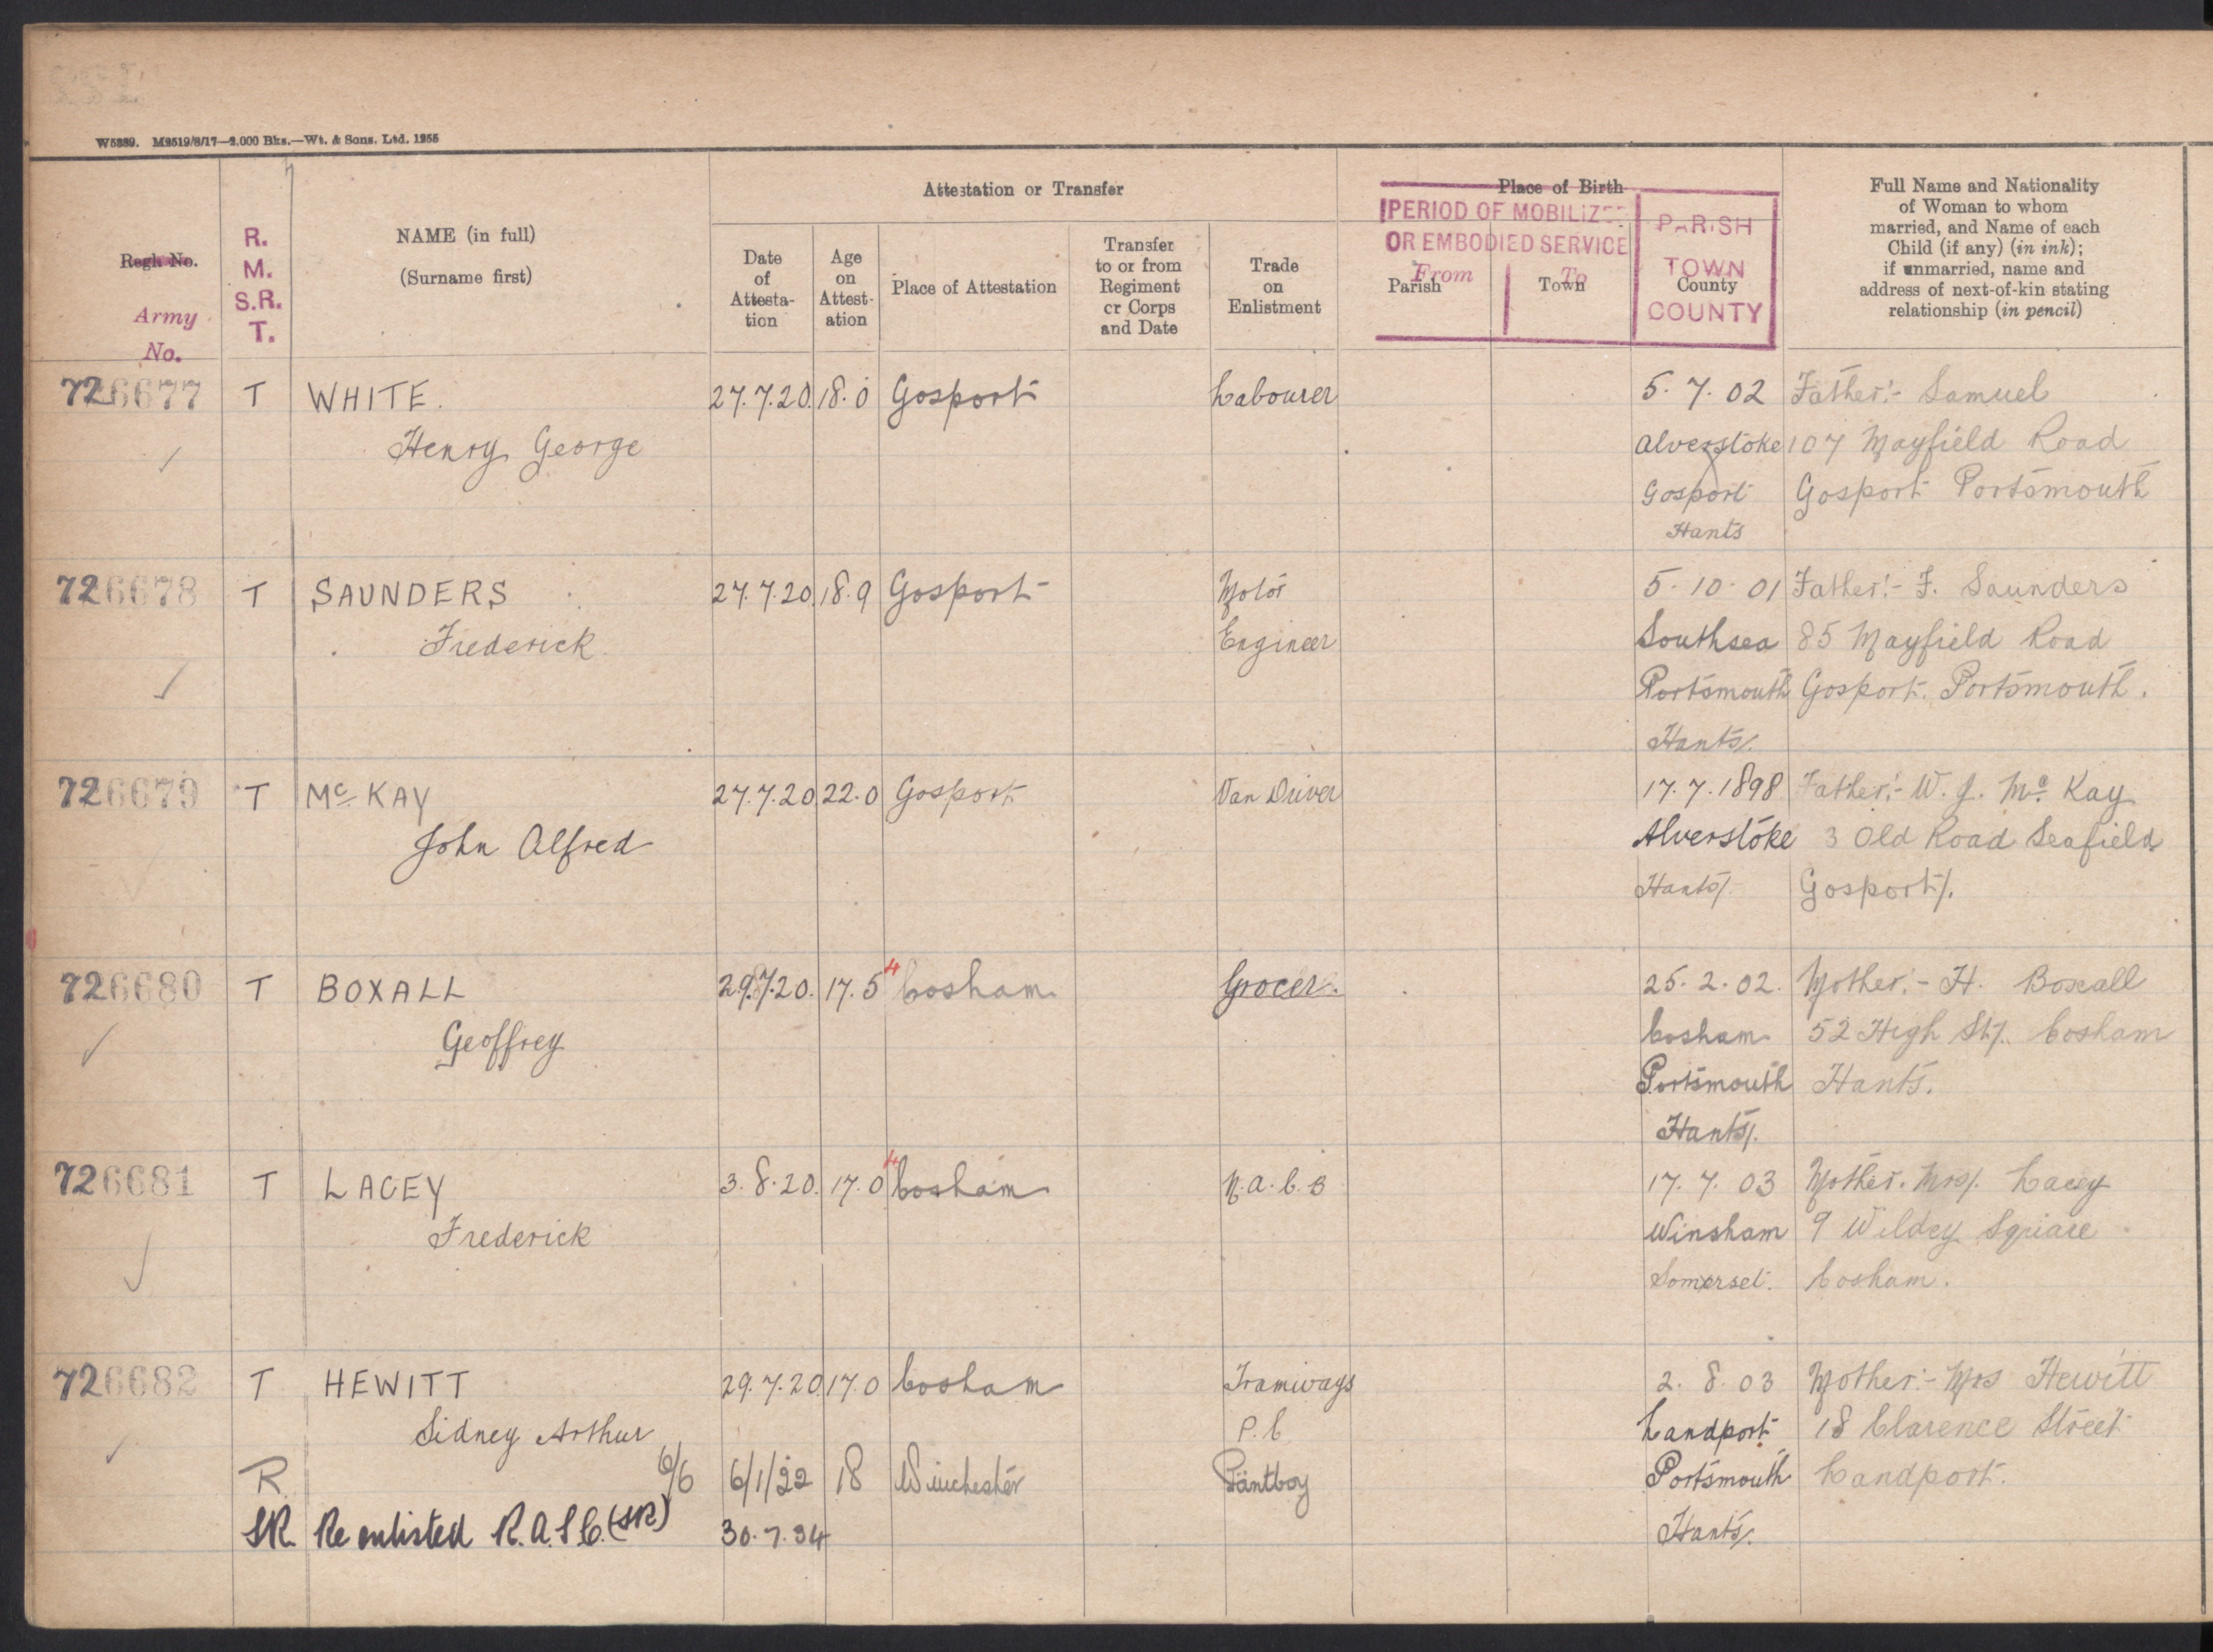 W5289. M2519/8/17—2.000 Bks.—Wt. & Sons. Ltd. 1255
Regtl. No.
Army
No.
R.
M.
S.R.
T.
NAME (in full)
(Surname first)
Attestation or Transfer
Date
of
Attesta-
tion
Age
on
Attest-
ation
Place of Attestation
Transfer
to or from
Regiment
or Corps
and Date
Trade
on
Enlistment
Place of Birth
PERIOD OF MOBILIZED
OR EMBODIED SERVICE
From To
Parish Town County
PARISH
TOWN
COUNTY
Full Name and Nationality
of Woman to whom
married, and Name of each
Child (if any) (in ink);
if unmarried, name and
address of next-of-kin stating
relationship (in pencil)
726677 T WHITE. 27.7.20. 18.0 Gosport Labourer 5.7.02 Father:- Samuel
Henry George Alverstoke 107 Mayfield Road
Gosport Gosport Portsmouth
Hants
726678 T SAUNDERS 27.7.20. 18.9 Gosport Motor 5-10-01 Father:- F. Saunders
Frederick. Engineer Southsea 85 Mayfield Road
Portsmouth Gosport. Portsmouth.
Hants/.
726679 T McKAY 27.7.20 22.0 Gosport Van Driver 17.7.1898 Father:- W. J. McKay
John Alfred Alverstoke 3 Old Road Seafield
Hants/. Gosport/.
726680 T BOXALL 29.7.20. 17.5 4 Cosham Grocer. 25.2.02. Mother:- H. Boxall
Geoffrey Cosham 52 High St/. Cosham
Portsmouth Hants.
Hants/.
726681 T LACEY 3.8.20. 17.0 4 Cosham N.A.C.B 17.7.03 Mother. Mrs/. Lacey
Frederick Winsham 9 Wildey Square
Somerset. Cosham.
726682 T HEWITT 29.7.20 17.0 Cosham Tramways 2.8.03 Mother:- Mrs Hewitt
Sidney Arthur P.C Landport 18 Clarence Street
R 6/6 6/1/22 18 Winchester Pantboy Portsmouth Landport.
SR. Re enlisted R.A.S.C. (SR) 30.7.34 Hants/.